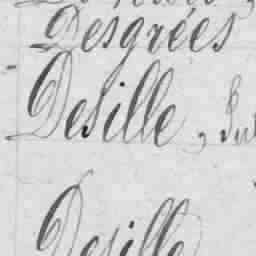 Desgrées
Desille,
Desille